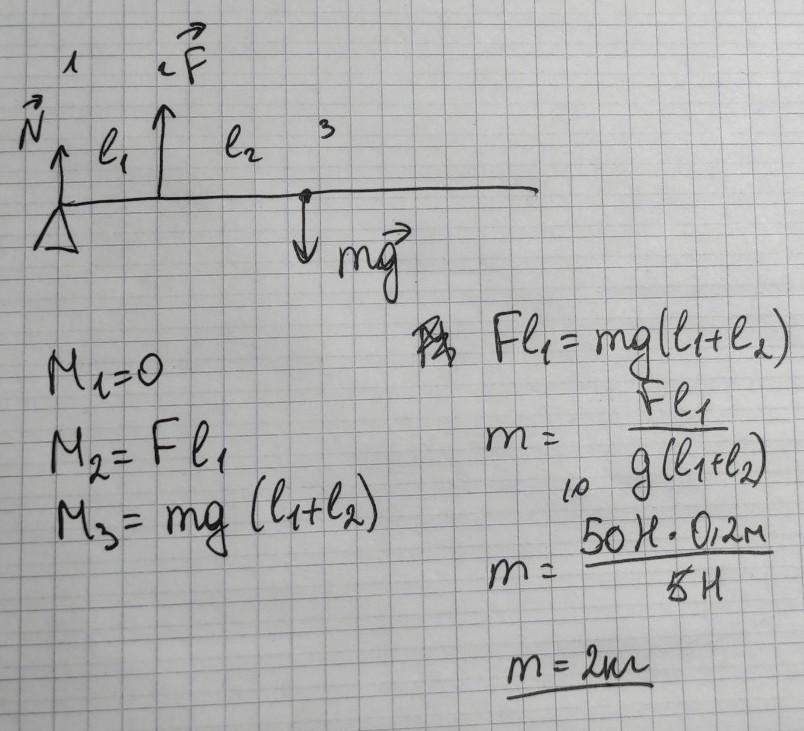 1 2 F⃗
N⃗ l₁ l₂ 3
mg⃗
M₁=0
M₂= Fl₁
M₃= mg (l₁+l₂)
Fl₁= mg(l₁+l₂)
m= Fl₁ / g(l₁+l₂)
10
m= 50Н·0,2м / 5Н
m=2кг